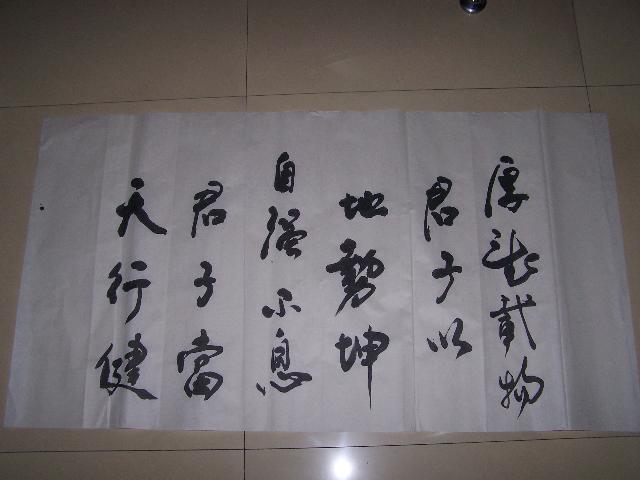 天行健
君子當
自強不息
地動坤
君子以
厚德載物